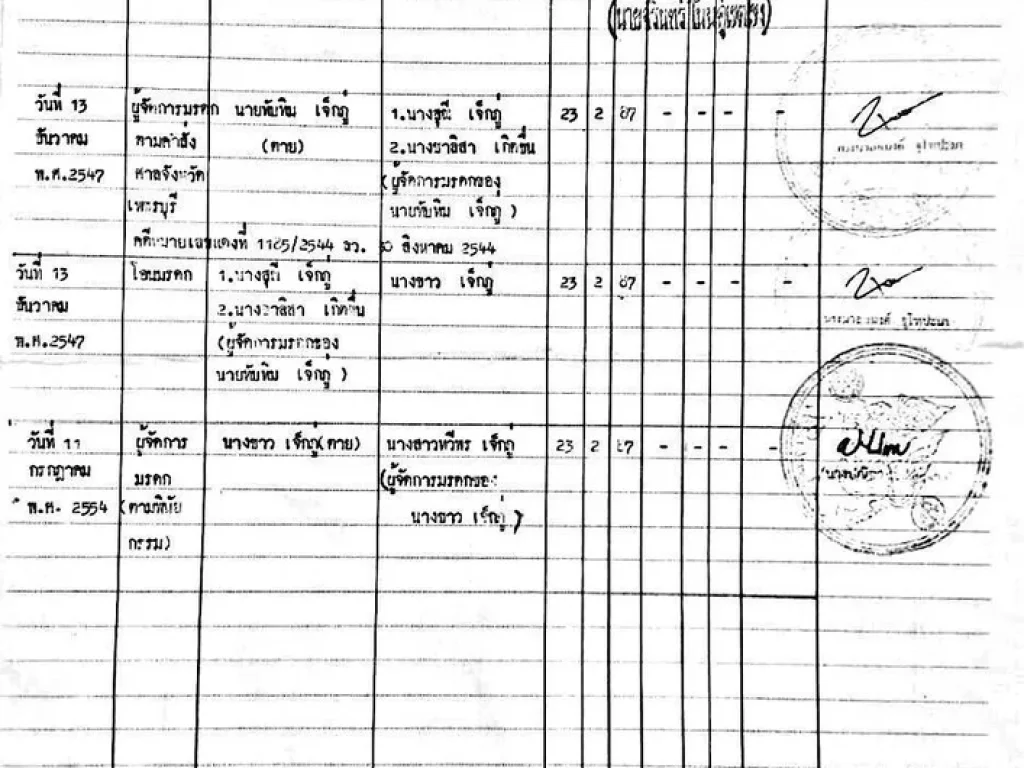 วันที่ 13 ผู้จัดการมรดก นายทับทิม เจ็กภู่ 1.นางสุนี เจ็กภู่ 23 2 87 - - - -
ธันวาคม ตามคำสั่ง (ตาย) 2.นางชาลิสา เกิดชื่น
พ.ศ.2547 ศาลจังหวัด (ผู้จัดการมรดกของ
เพชรบุรี นายทับทิม เจ็กภู่ )
คดีหมายเลขแดงที่ 1185/2544 ลว. สิงหาคม 2544
วันที่ 13 โอนมรดก 1.นางสุนี เจ็กภู่ นางขาว เจ็กภู่ 23 2 87 - - - -
ธันวาคม 2.นางชาลิสา เกิดชื่น
พ.ศ.2547 (ผู้จัดการมรดกของ
นายทับทิม เจ็กภู่ )
วันที่ 11 ผู้จัดการ นางขาว เจ็กภู่(ตาย) นางสาวทวีพร เจ็กภู่ 23 2 87 - - - -
กรกฎาคม มรดก (ผู้จัดการมรดกของ
พ.ศ. 2554 (ตามพินัย นางขาว เจ็กภู่ )
กรรม)